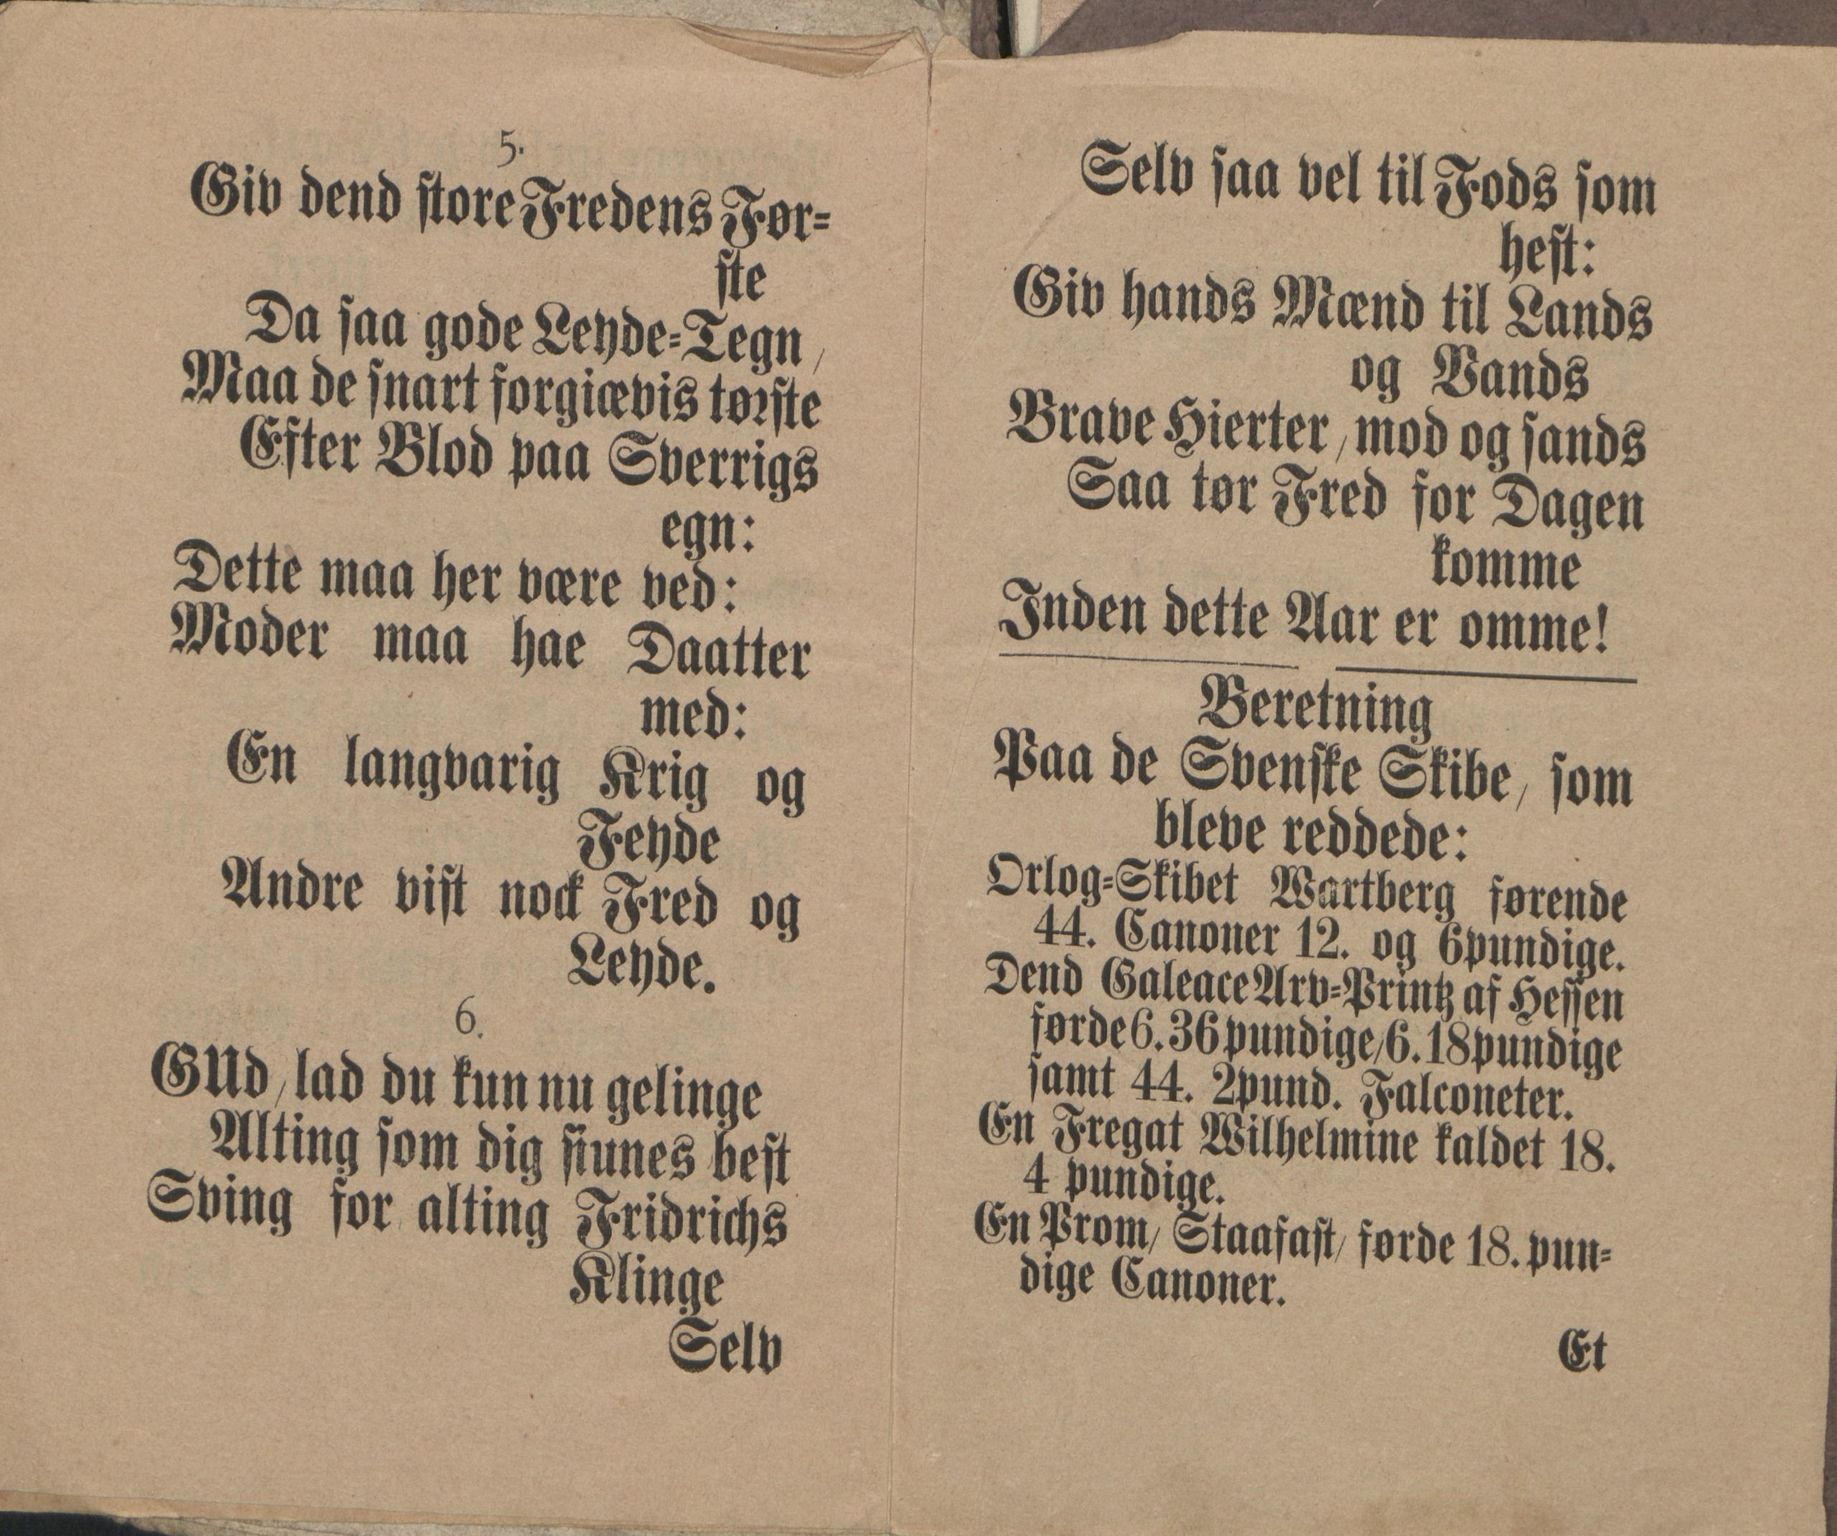 5.
Giv dend store Fredens Før=
ste
Da saa gode Leyde=Tegn /
Maa de snart forgiævis tørste
Efter Blod paa Sverrigs
egn:
Dette maa her være ved:
Moder maa hae Daatter
med:
En langvarig Krig og
Feyde
Andre vist nock Fred og
Leyde.
6.
GUd / lad du kun nu gelinge
Alting som dig siunes best
Sving for alting Fridrichs
Klinge
Selv
Selv saa vel til Fods som
hest:
Giv hands Mænd til Lands
og Vands
Brave Hierter / mod og sands
Saa tør Fred for Dagen
komme
Inden dette Aar er omme!
Beretning
Paa de Svenske Skibe / som
bleve reddede:
Orlog=Skibet Wartberg førende
44. Canoner 12. og 6pundige.
Dend Galeace Arv=Printz af Hessen
førde 6. 36pundige / 6. 18pundige
samt 44. 2pund. Falconeter.
En Fregat Wilhelmine kaldet 18.
4 pundige.
En Prom / Staafast / førde 18. pun=
dige Canoner.
Et